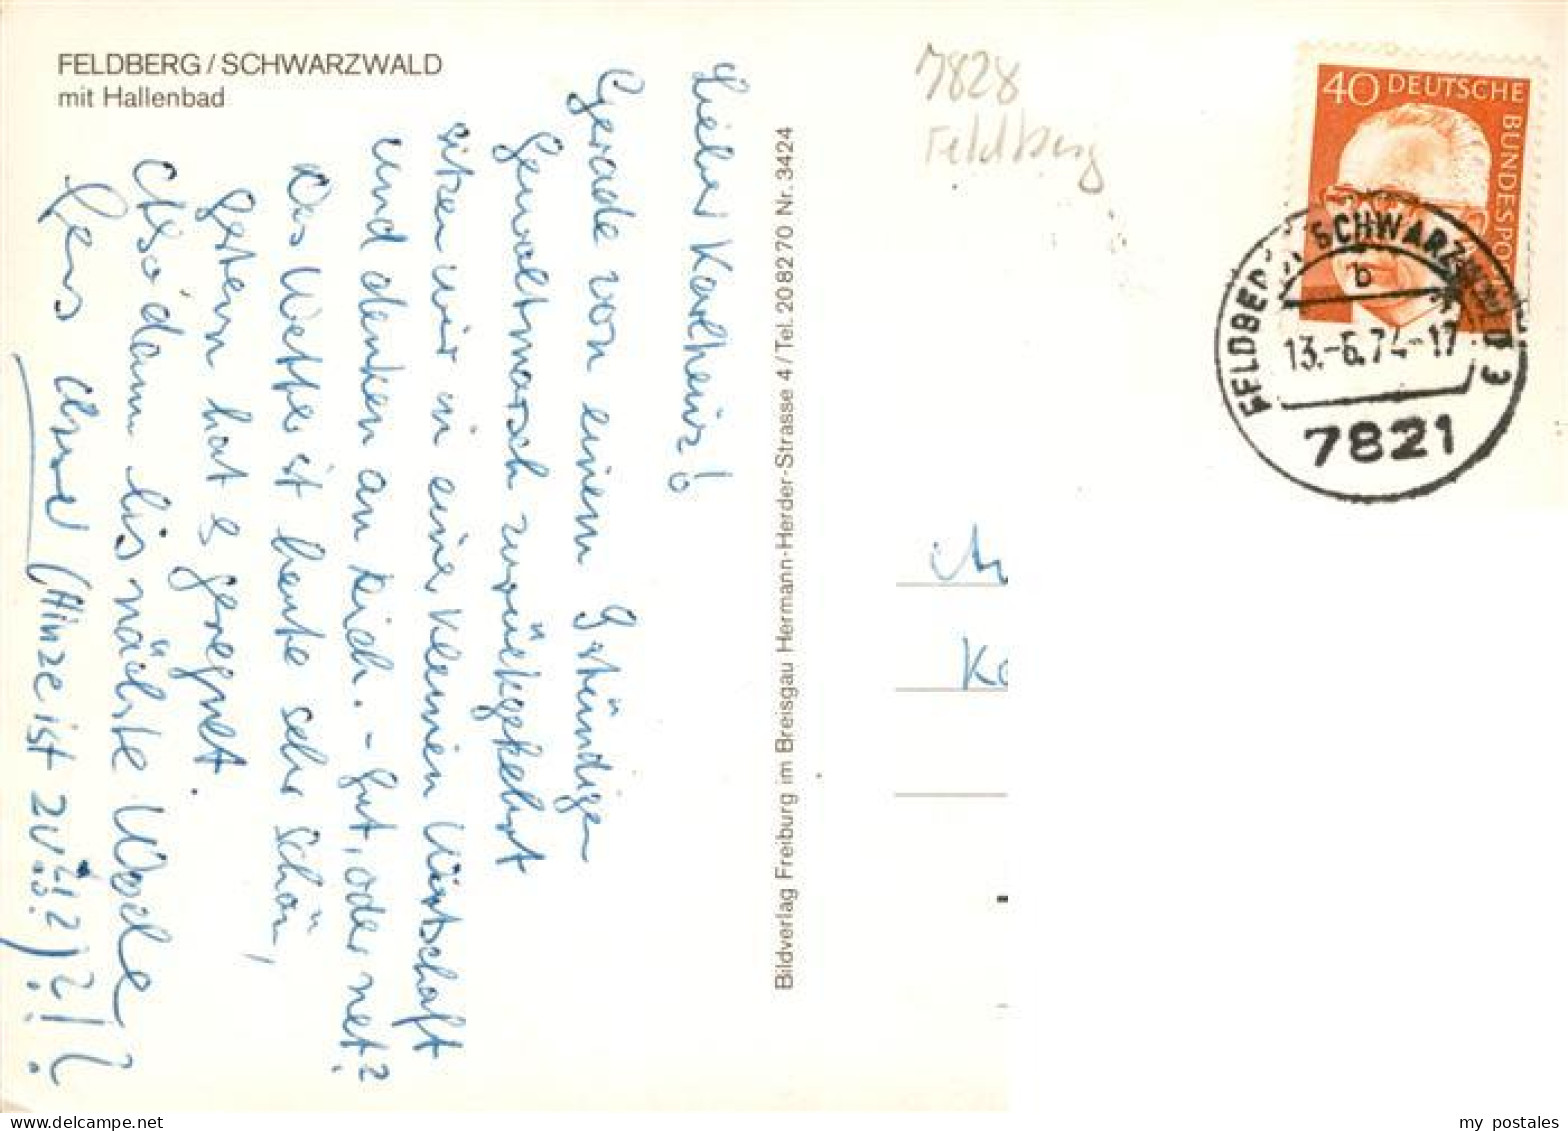 FELDBERG / SCHWARZWALD
mit Hallenbad
Lieber Karlheinz!
Gerade von einem 9stündigen
Gewaltmarsch zurückgekehrt
sitzen wir in einer kleinen Wirtschaft
und denken an Dich. - Gut, oder net?
Das Wetter ist heute sehr schön,
gestern hat es geregnet.
Also dann bis nächste Woche
(Hinze ist zu
Bildverlag Freiburg im Breisgau Hermann-Herder-Strasse 4 / Tel. 20 82 70 Nr. 3424
7828
Feldberg
40 DEUTSCHE BUNDESPO
FELDBERG SCHWARZWALD 3
b
13.-6.74-17
7821
An
Ka
my postales